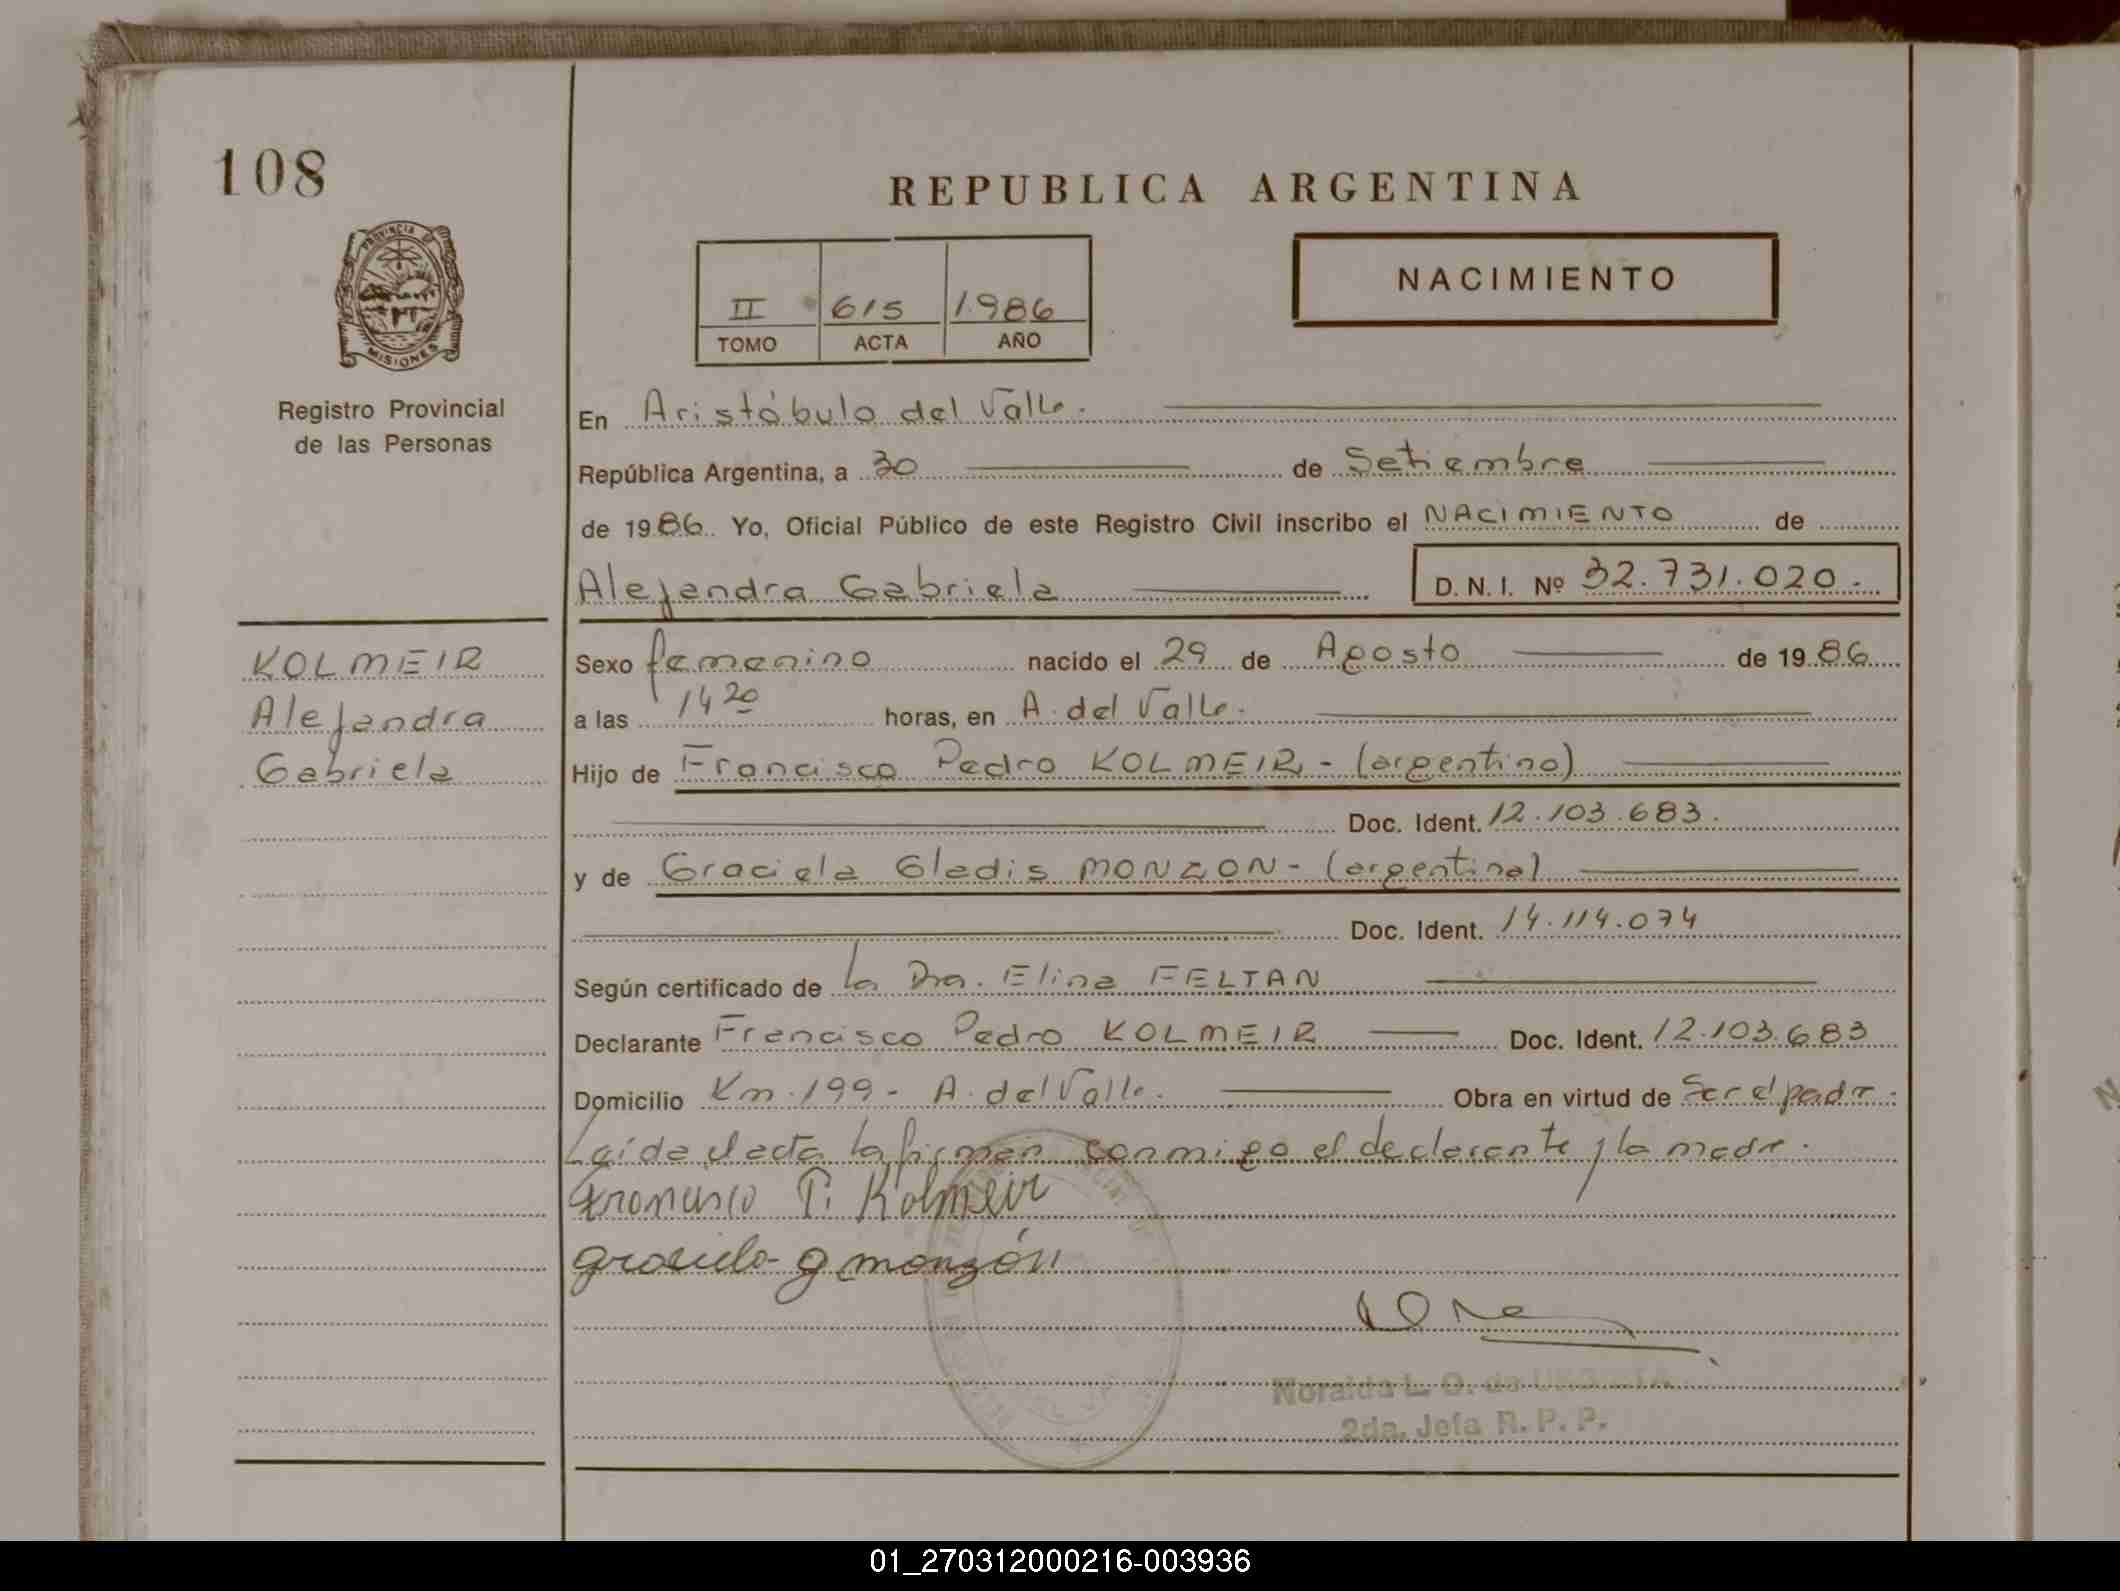 108
REPUBLICA ARGENTINA
PROVINCIA DE
MISIONES
Registro Provincial
de las Personas
II 615 1.986
TOMO ACTA AÑO
NACIMIENTO
En Aristóbulo del Valle.
República Argentina, a 30 de Setiembre
de 1986. Yo, Oficial Público de este Registro Civil inscribo el NACIMIENTO de
Alejandra Gabriela D. N. I. Nº 32.731.020.-
KOLMEIR
Alejandra
Gabriela
Sexo femenino nacido el 29 de Agosto de 1986
a las 14 20 horas, en A. del Valle.
Hijo de Francisco Pedro KOLMEIR - (argentino)
Doc. Ident. 12.103.683.
y de Graciela Gladis MONZON - (argentina)
Doc. Ident. 14.114.074
Según certificado de la Dra. Elina FELTAN
Declarante Francisco Pedro KOLMEIR Doc. Ident. 12.103.683
Domicilio Km. 199 - A. del Valle. Obra en virtud de Ser el padre.
Leída el acta la firman conmigo el declarante y la madre.
Francisco P. Kolmeir
graciela g monzón
Noralda L. O. de
2da. Jefa R. P. P.
01_270312000216-003936